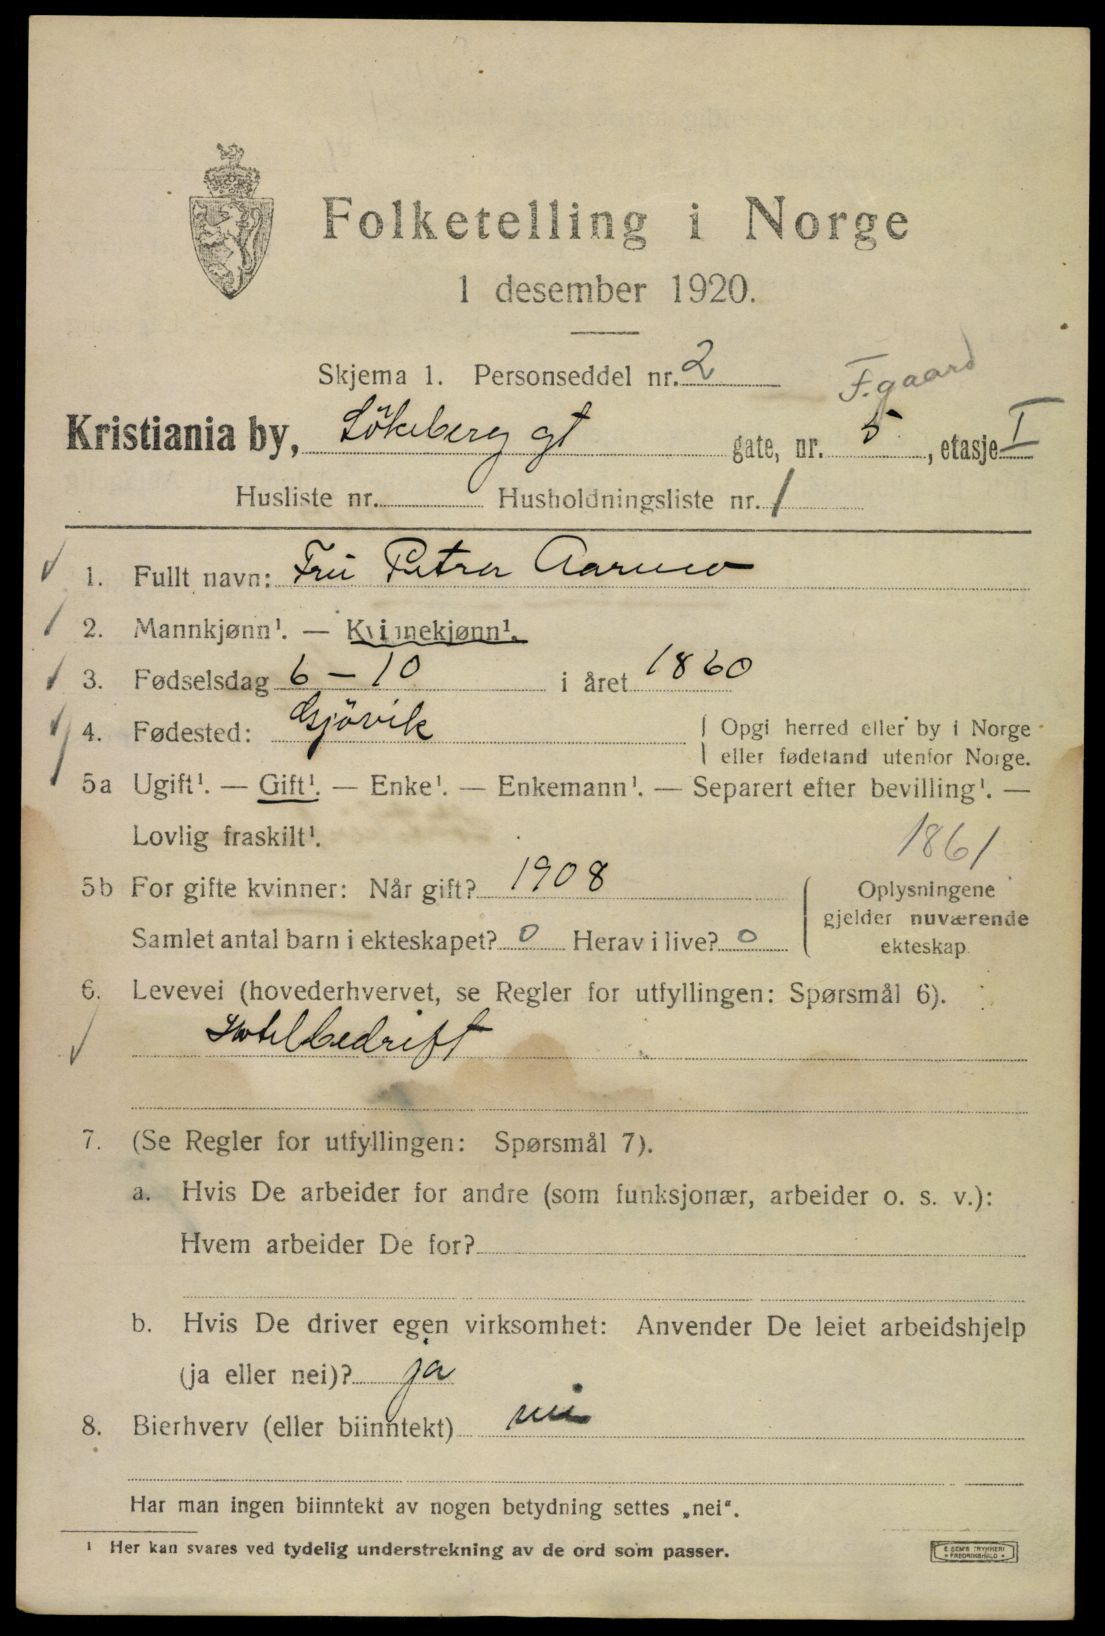 Folketelling i Norge
1 desember 1920.
Skjema 1. Personseddel nr. 2
F.gaard
Kristiania by, Lökeberg gt gate, nr. 5, etasje I
Husliste nr. Husholdningsliste nr. 1
1. Fullt navn: Fru Petra
2. Mannkjønn¹. — Kvinnekjønn¹.
3. Fødselsdag 6 – 10 i året 1860
4. Fødested: Gjövik
Opgi herred eller by i Norge
eller fødeland utenfor Norge.
5a Ugift¹. — Gift¹. — Enke¹. — Enkemann¹. — Separert efter bevilling¹. —
Lovlig fraskilt¹.
1861
5b For gifte kvinner: Når gift? 1908
Samlet antal barn i ekteskapet? 0 Herav i live? 0
Oplysningene
gjelder nuværende
ekteskap.
6. Levevei (hovederhvervet, se Regler for utfyllingen: Spørsmål 6).
Hotelbedrift
7. (Se Regler for utfyllingen: Spørsmål 7).
a. Hvis De arbeider for andre (som funksjonær, arbeider o. s. v.):
Hvem arbeider De for?
b. Hvis De driver egen virksomhet: Anvender De leiet arbeidshjelp
(ja eller nei)? ja
8. Bierhverv (eller biinntekt) nei
Har man ingen biinntekt av nogen betydning settes „nei“.
¹ Her kan svares ved tydelig understrekning av de ord som passer.
E. SEM'S TRYKKERI
FREDRIKSHALD